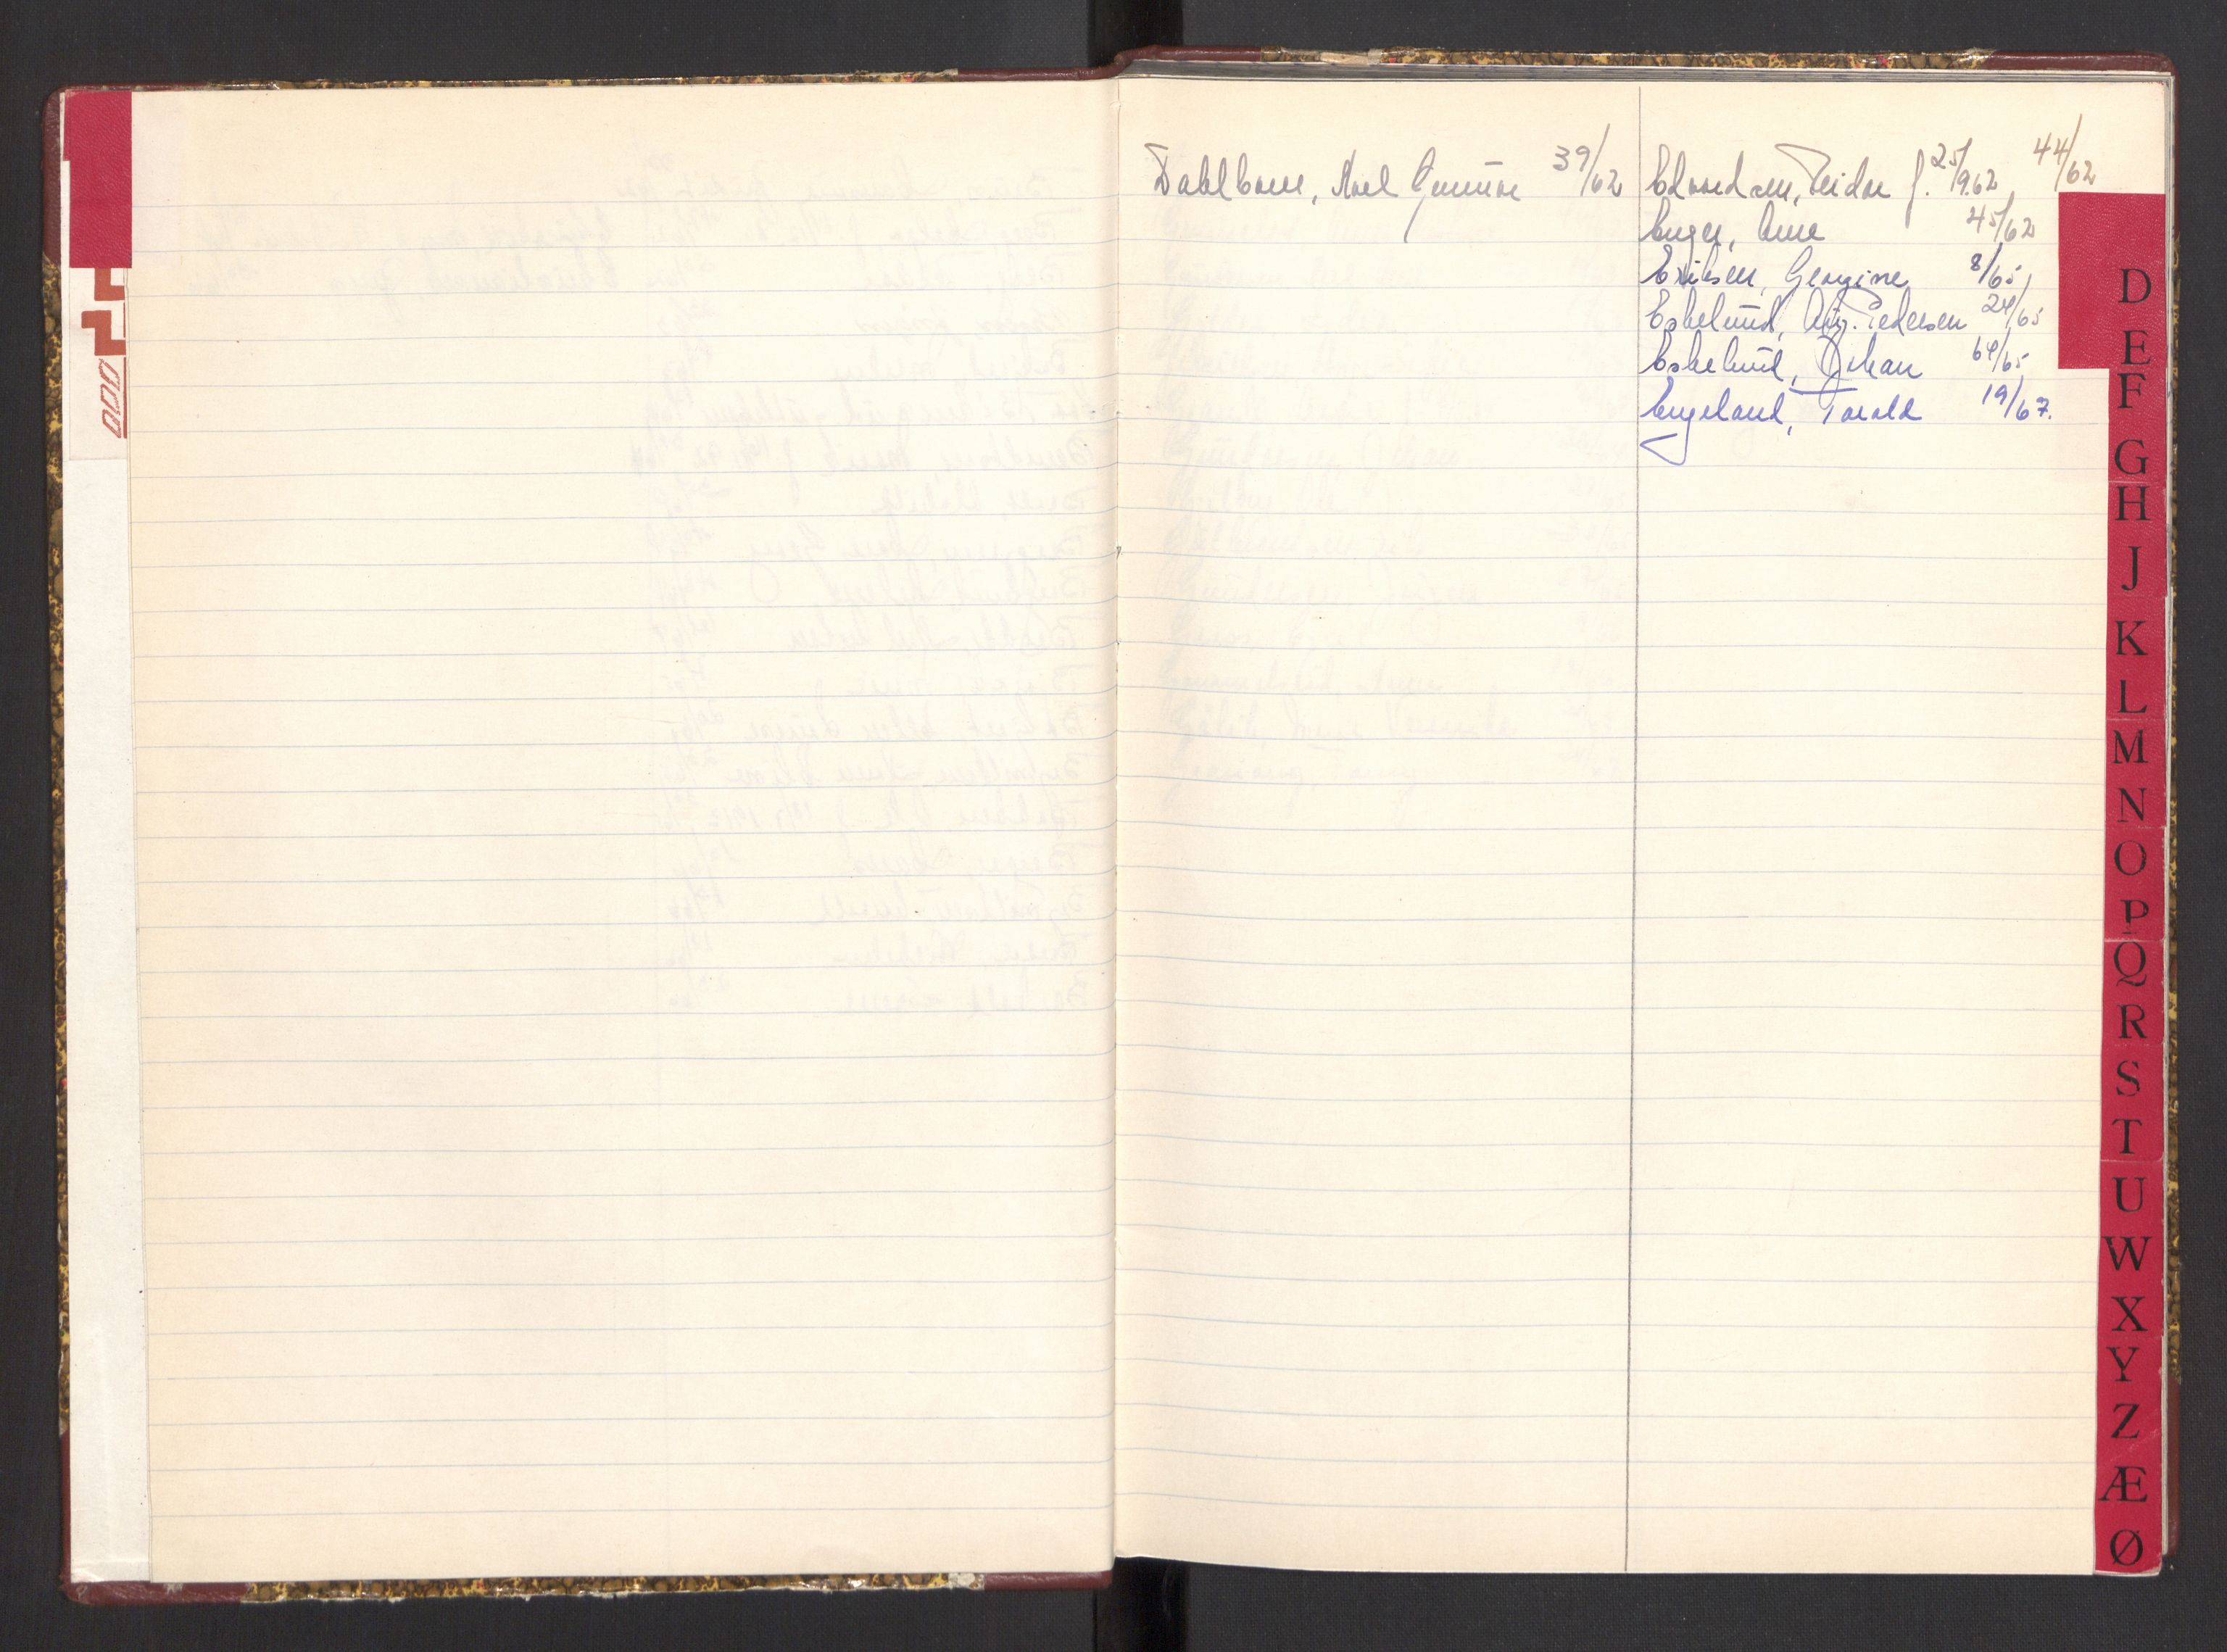 Dahlbom, Axel Gunnar 39/62
Edvardsen, Reidar f. 25/9.62 44/62
Enger, Arne 45/62
Eriksen, Georgine 8/65
Eskelund, Aug. Pedersen 24/65
Eskelund, Johan 64/65
Engeland, Torald 19/67.
D
E
F
G
H
J
K
L
M
N
O
P
Q
R
S
T
U
W
X
Y
Z
Æ
Ø